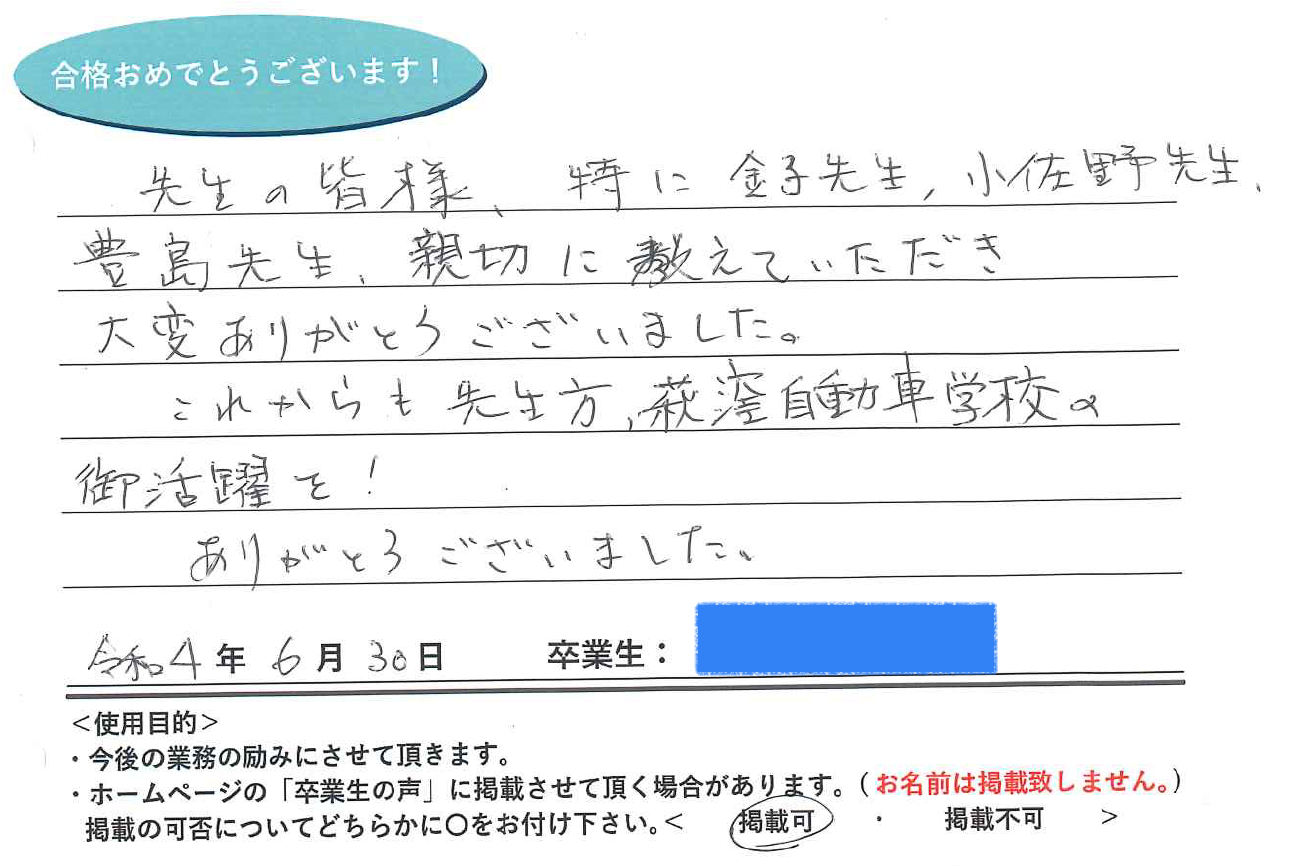 合格おめでとうございます！
先生の皆様、特に金子先生,小佐野先生、
豊島先生、親切に教えていただき
大変ありがとうございました。
これからも先生方,萩窪自動車学校の
御活躍を！
ありがとうございました。
令和4年6月30日 卒業生：
＜使用目的＞
・今後の業務の励みにさせて頂きます。
・ホームページの「卒業生の声」に掲載させて頂く場合があります。（お名前は掲載致しません。）
掲載の可否についてどちらかに〇をお付け下さい。＜ 掲載可 ・ 掲載不可 ＞